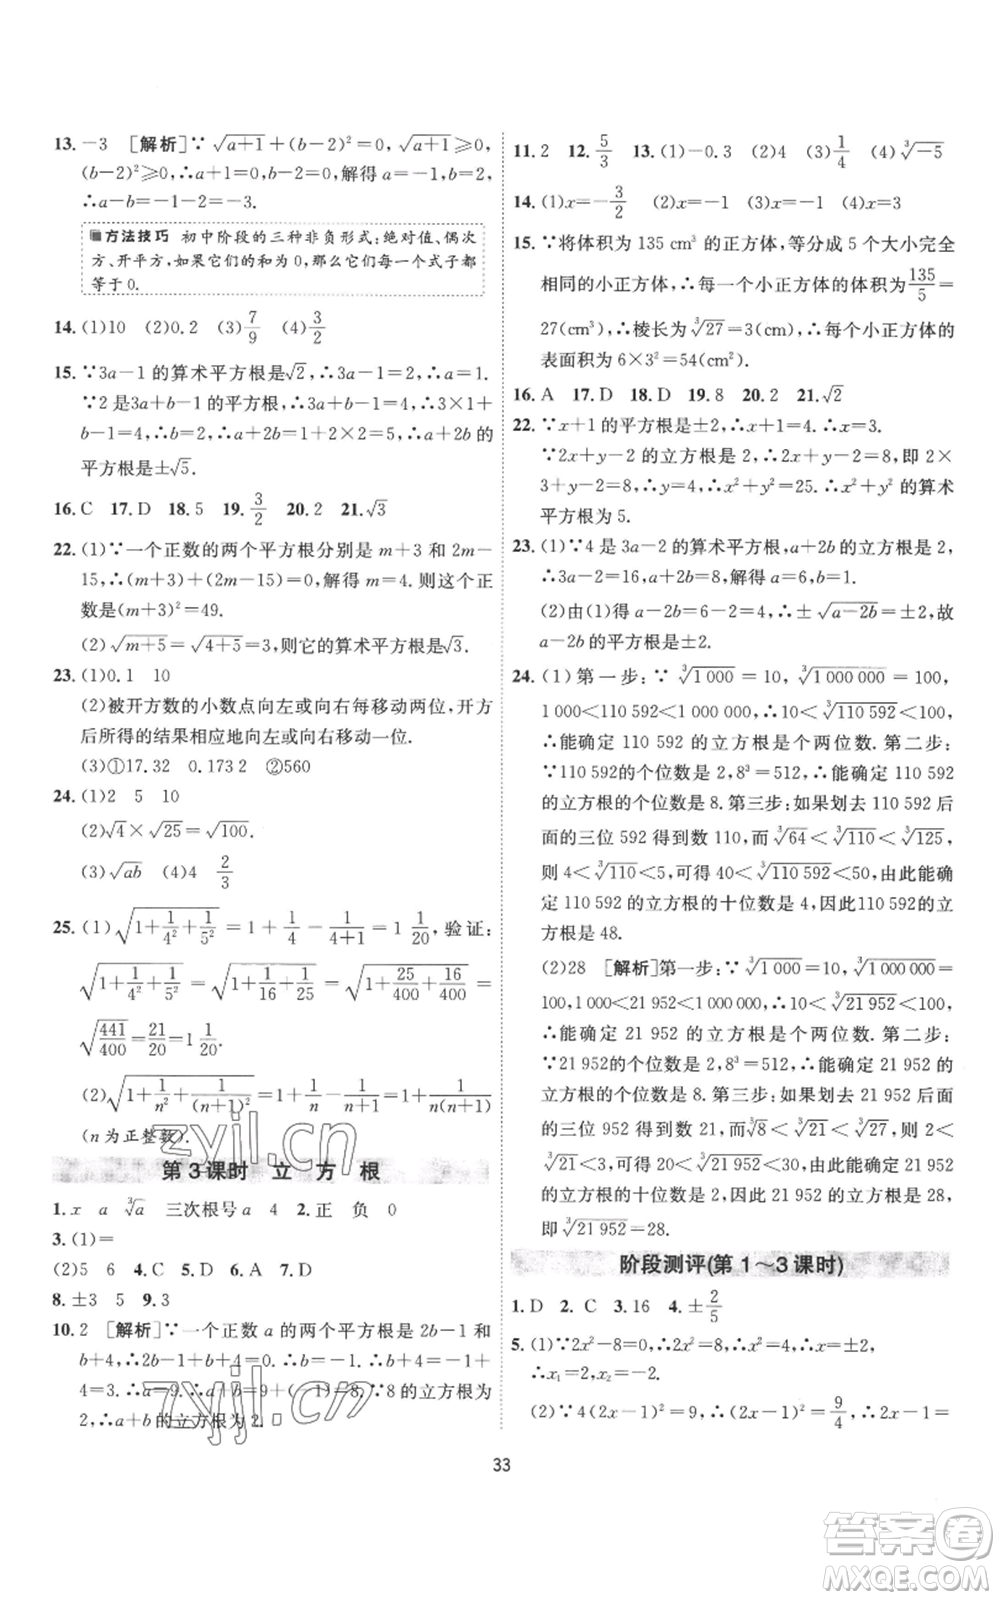 13. －3　[解析]∵√(a+1)+(b－2)²=0,√(a+1)≥0,
(b－2)²≥0,∴a+1=0,b－2=0,解得a=－1,b=2,
∴a－b=－1－2=－3.
方法技巧　初中阶段的三种非负形式:绝对值、偶次
方、开平方,如果它们的和为0,那么它们每一个式子都
等于0.
14. (1)10　(2)0.2　(3)7/9　(4)3/2
15. ∵3a－1的算术平方根是√2,∴3a－1=2,∴a=1.
∵2是3a+b－1的平方根,∴3a+b－1=4,∴3×1+
b－1=4,∴b=2,∴a+2b=1+2×2=5,∴a+2b的
平方根是±√5.
16. C　17. D　18. 5　19. 3/2　20. 2　21. √3
22. (1)∵一个正数的两个平方根分别是m+3和2m－
15,∴(m+3)+(2m－15)=0,解得m=4.则这个正
数是(m+3)²=49.
(2)√(m+5)=√(4+5)=3,则它的算术平方根是√3.
23. (1)0.1　10
(2)被开方数的小数点向左或向右每移动两位,开方
后所得的结果相应地向左或向右移动一位.
(3)①17.32　0.173 2　②560
24. (1)2　5　10
(2)√4×√25=√100.
(3)√ab　(4)4　2/3
25. (1)√(1+1/4²+1/5²)=1+1/4－1/(4+1)=1 1/20,验证:
√(1+1/4²+1/5²)=√(1+1/16+1/25)=√(1+25/400+16/400)=
√(441/400)=21/20=1 1/20.
(2)√(1+1/n²+1/(n+1)²)=1+1/n－1/(n+1)=1+1/(n(n+1))
(n为正整数).
第3课时　立　方　根
1. x　a　∛a　三次根号a　4　2. 正　负　0
3. (1)=
(2)5　6　4. C　5. C　6. A　7. D
8. ±3　5　9. 3
10. 2　[解析]∵一个正数a的两个平方根是2b－1和
b+4,∴2b－1+b+4=0.∴b=－1.∴b+4=－1+
4=3.∴a=9.∴a+b=9+(－1)=8.∵8的立方根为
2,∴a+b的立方根为2.
11. 2　12. 5/3　13. (1)－0.3　(2)4　(3)1/4　(4)∛－5
14. (1)x=－3/2　(2)x=4　(3)x=0
15. ∵将体积为135 cm³的正方体,等分成5个大小完全
相同的小正方体,∴每一个小正方体的体积为135/5=
27(cm³),∴棱长为∛27=3(cm),∴每个小正方体的
表面积为6×3²=54(cm²).
16. A　17. D　18. D　19. 8　20. 2　21. √2
22. ∵x+1的平方根是±2,∴x+1=4.∴x=3.
∵2x+y－2的立方根是2,∴2x+y－2=8,即2×
3+y－2=8,∴y=4,∴x²+y²=25.∴x²+y²的算术
平方根为5.
23. (1)∵4是3a－2的算术平方根,a+2b的立方根是2,
∴3a－2=16,a+2b=8,解得a=6,b=1.
(2)由(1)得a－2b=6－2=4,∴±√(a－2b)=±2,故
a－2b的平方根是±2.
24. (1)第一步:∵∛1 000=10,∛1 000 000=100,
1 000<110 592<1 000 000,∴10<∛110 592<100,
∴能确定110 592的立方根是个两位数.第二步:
∵110 592的个位数是2,8³=512,∴能确定110 592
的立方根的个位数是8.第三步:如果划去110 592后
面的三位592得到数110,而∛64<∛110<∛125,
则4<∛110<5,可得40<∛110 592<50,由此能确
定110 592的立方根的十位数是4,因此110 592的立
方根是48.
(2)28　[解析]第一步:∵∛1 000=10,∛1 000 000=
100,1 000<21 952<1 000 000,∴10<∛21 952<100,
∴能确定21 952的立方根是个两位数.第二步:
∵21 952的个位数是2,8³=512,∴能确定21 952的
立方根的个位数是8.第三步:如果划去21 952后面
的三位952得到数21,而∛8<∛21<∛27,则2<
∛21<3,可得20<∛21 952<30,由此能确定21 952
的立方根的十位数是2,因此21 952的立方根是28,
即∛21 952=28.
阶段测评(第1～3课时)
1. D　2. C　3. 16　4. ±2/5
5. (1)∵2x²－8=0,∴2x²=8,∴x²=4,∴x=±2,
∴x₁=2,x₂=－2.
(2)∵4(2x－1)²=9,∴(2x－1)²=9/4,∴2x－1=
33
zyjl.cn
zyjl.cn
答案卷
MXQE.COM